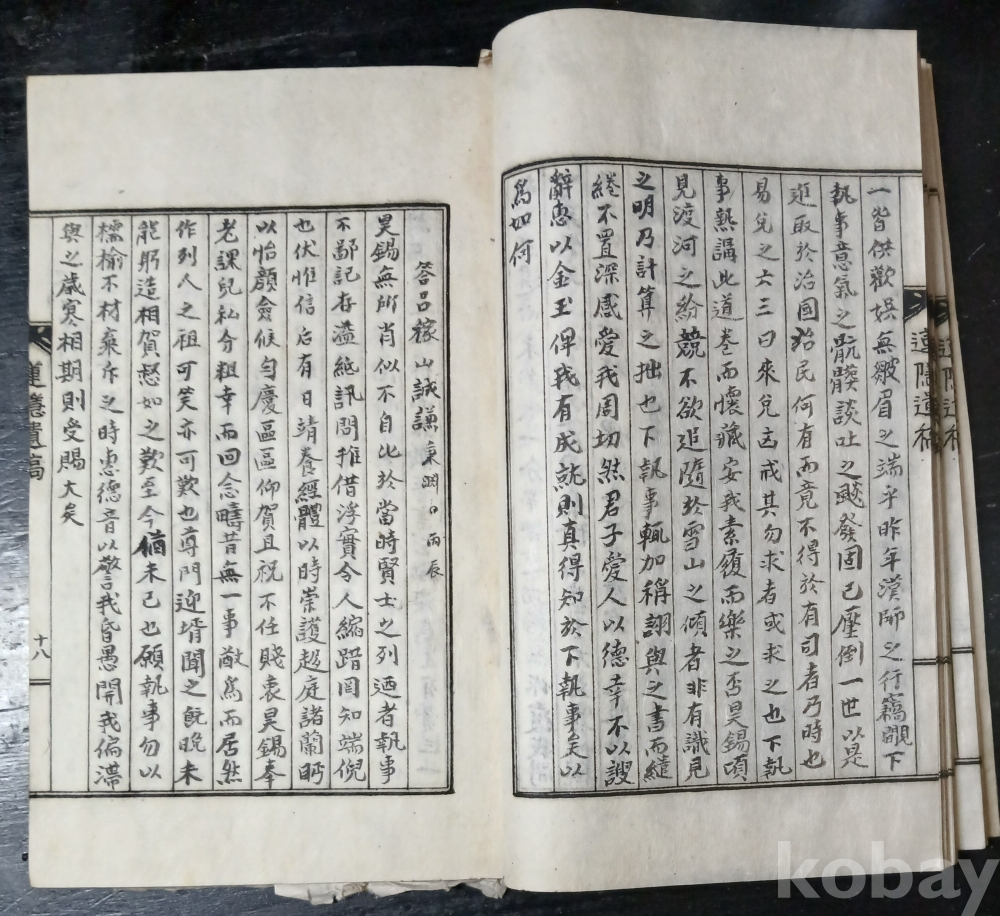 一皆供歡娛無皺眉之端乎昨年漢師之行竊覵下
執事意氣之骯髒談吐之颷發固已壓倒一世以是
逛取於治國治民何有而竟不得於有司者乃時也
易兌之六三曰來兌凶戒其勿求者或求之也下執
事熟講此道卷而懷藏安我素履而樂之否昊錫頃
見渡河之紛競不欲追隨於雪山之傾者非有識見
之明乃計算之拙也下執事輒加稱詡與之書而繾
綣不置深感愛我周切然君子愛人以德幸不以謏
辭惠以金玉俾我有成就則真得知於下執事矣以
爲如何
蓮隱遺稿
答呂稼山誠謙秉明丙辰
昊錫無所肖似不自比於當時賢士之列迺者執事
不鄙記存溢紙訊問推借浮實令人縮踖罔知端倪
也伏惟信后有日靖養經體以時崇護趍庭諸蘭眄
以怡顔僉候勻慶區區仰賀且祝不任賤衷昊錫奉
老課兒私分粗幸而回念疇昔無一事敢爲而居然
作列人之祖可笑亦可歎也尊門迎壻聞之旣晚未
能躬造相賀愸如之歎至今猶未已也願執事勿以
樗楡不材棄斥之時惠德音以警我昏愚開我偏滯
與之歲寒相期則受賜大矣
蓮隱遺稿
十八
kobay